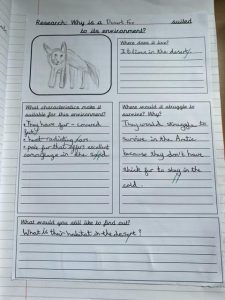 Research: Why is a Desert Fox suited
to its environment?
Where does it live?
It lives in the desert.
What characteristics make it
suitable for this environment?
• They have fur-covered
feet
• heat-radiating ears
• pale fur that offers excellent
camouflage in the sand
Where would it struggle to
survive? Why?
They would struggle to
survive in the Artic
because they don't have
thick fur to stay in the
cold.
What would you still like to find out?
What is their habitat in the desert?